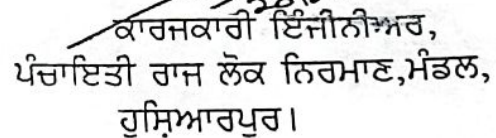 ਕਾਰਜਕਾਰੀ ਇੰਜੀਨੀਅਰ,
ਪੰਚਾਇਤੀ ਰਾਜ ਲੋਕ ਨਿਰਮਾਣ,ਮੰਡਲ,
ਹੁਸ਼ਿਆਰਪੁਰ।